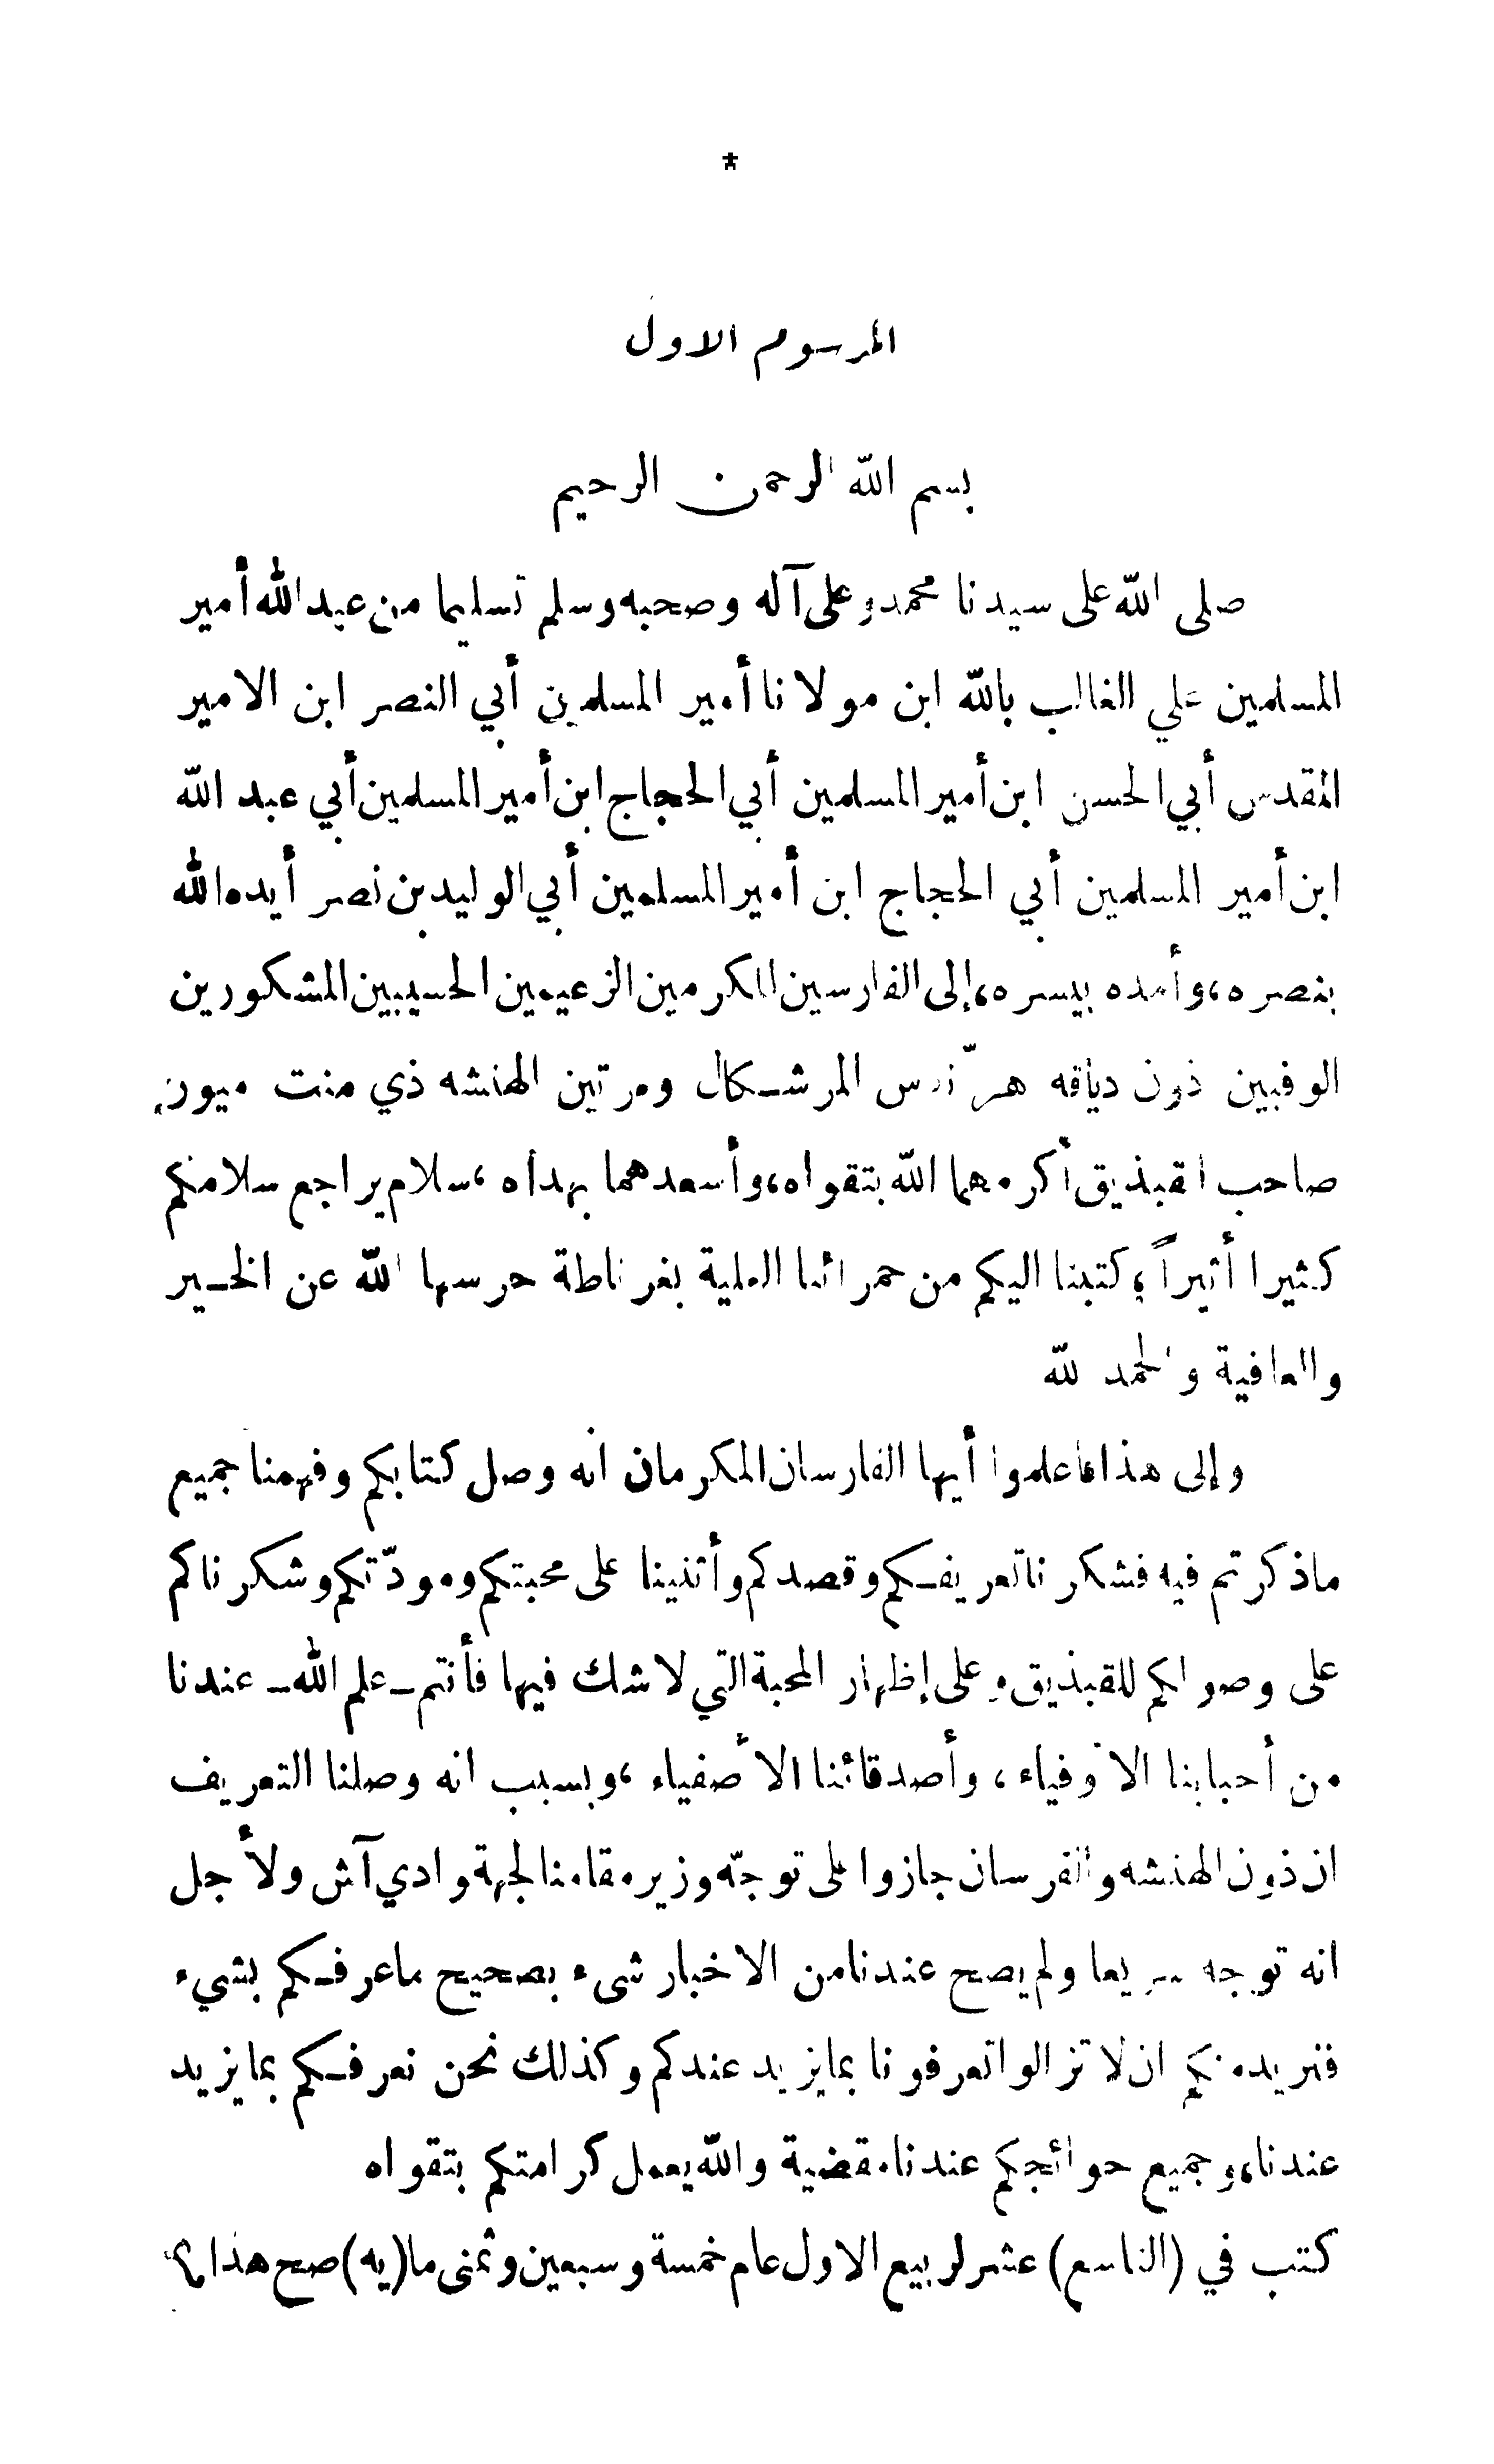 *
المرسوم الاول
بسم الله الرحمن الرحيم
صلى الله على سيدنا محمد وعلى آله وصحبه وسلم تسليما من عبد الله أمير
المسلمين علي الغالب بالله ابن مولانا أمير المسلمين أبي النصر ابن الامير
المقدس أبي الحسن ابن أمير المسلمين أبي الحجاج ابن أمير المسلمين أبي عبد الله
ابن أمير المسلمين أبي الحجاج ابن أمير المسلمين أبي الوليد بن نصر أيده الله
بنصره، وأمده بيسره، إلى الفارسين المكرمين الزعيمين الحسيبين المشكورين
الوفيين ذون دياقه المرشكال ومرتين الهنشه ذي منت ميور
صاحب القبذيق أكرمهما الله بتقواه، وأسعدهما بهداه، سلام يراجع سلامكم
كثيرا أثيراً، كتبنا اليكم من حمرائنا العلية بغرناطة حرسها الله عن الخير
والعافية والحمد لله
وإلى هذا فاعلموا أيها الفارسان المكرمان انه وصل كتابكم وفهمنا جميع
ماذكرتم فيه فشكرنا تعريفكم وقصدكم وأثنينا على محبتكم ومودّتكم وشكرناكم
على وصولكم للقبذيق وعلى إظهار المحبة التي لاشك فيها فأنتم ـ علم الله ـ عندنا
من أحبابنا الاوفياء، وأصدقائنا الأصفياء، وبسبب انه وصلنا التعريف
ان ذون الهنشه والفرسان جازوا على توجّه وزير مقامنا لجهة وادي آش ولأجل
انه توجه سريعا ولم يصح عندنا من الاخبار شىء بصحيح ماعرفكم بشيء
فنريد منكم ان لا تزالوا تعرفونا بمايزيد عندكم وكذلك نحن نعرفكم بمايزيد
عندنا، وجميع حوائجكم عندنا مقضية والله يعمل كرامتكم بتقواه
كتب في (التاسع) عشر لربيع الاول عام خمسة وسبعين وثمنى ما(يه) صح هذا